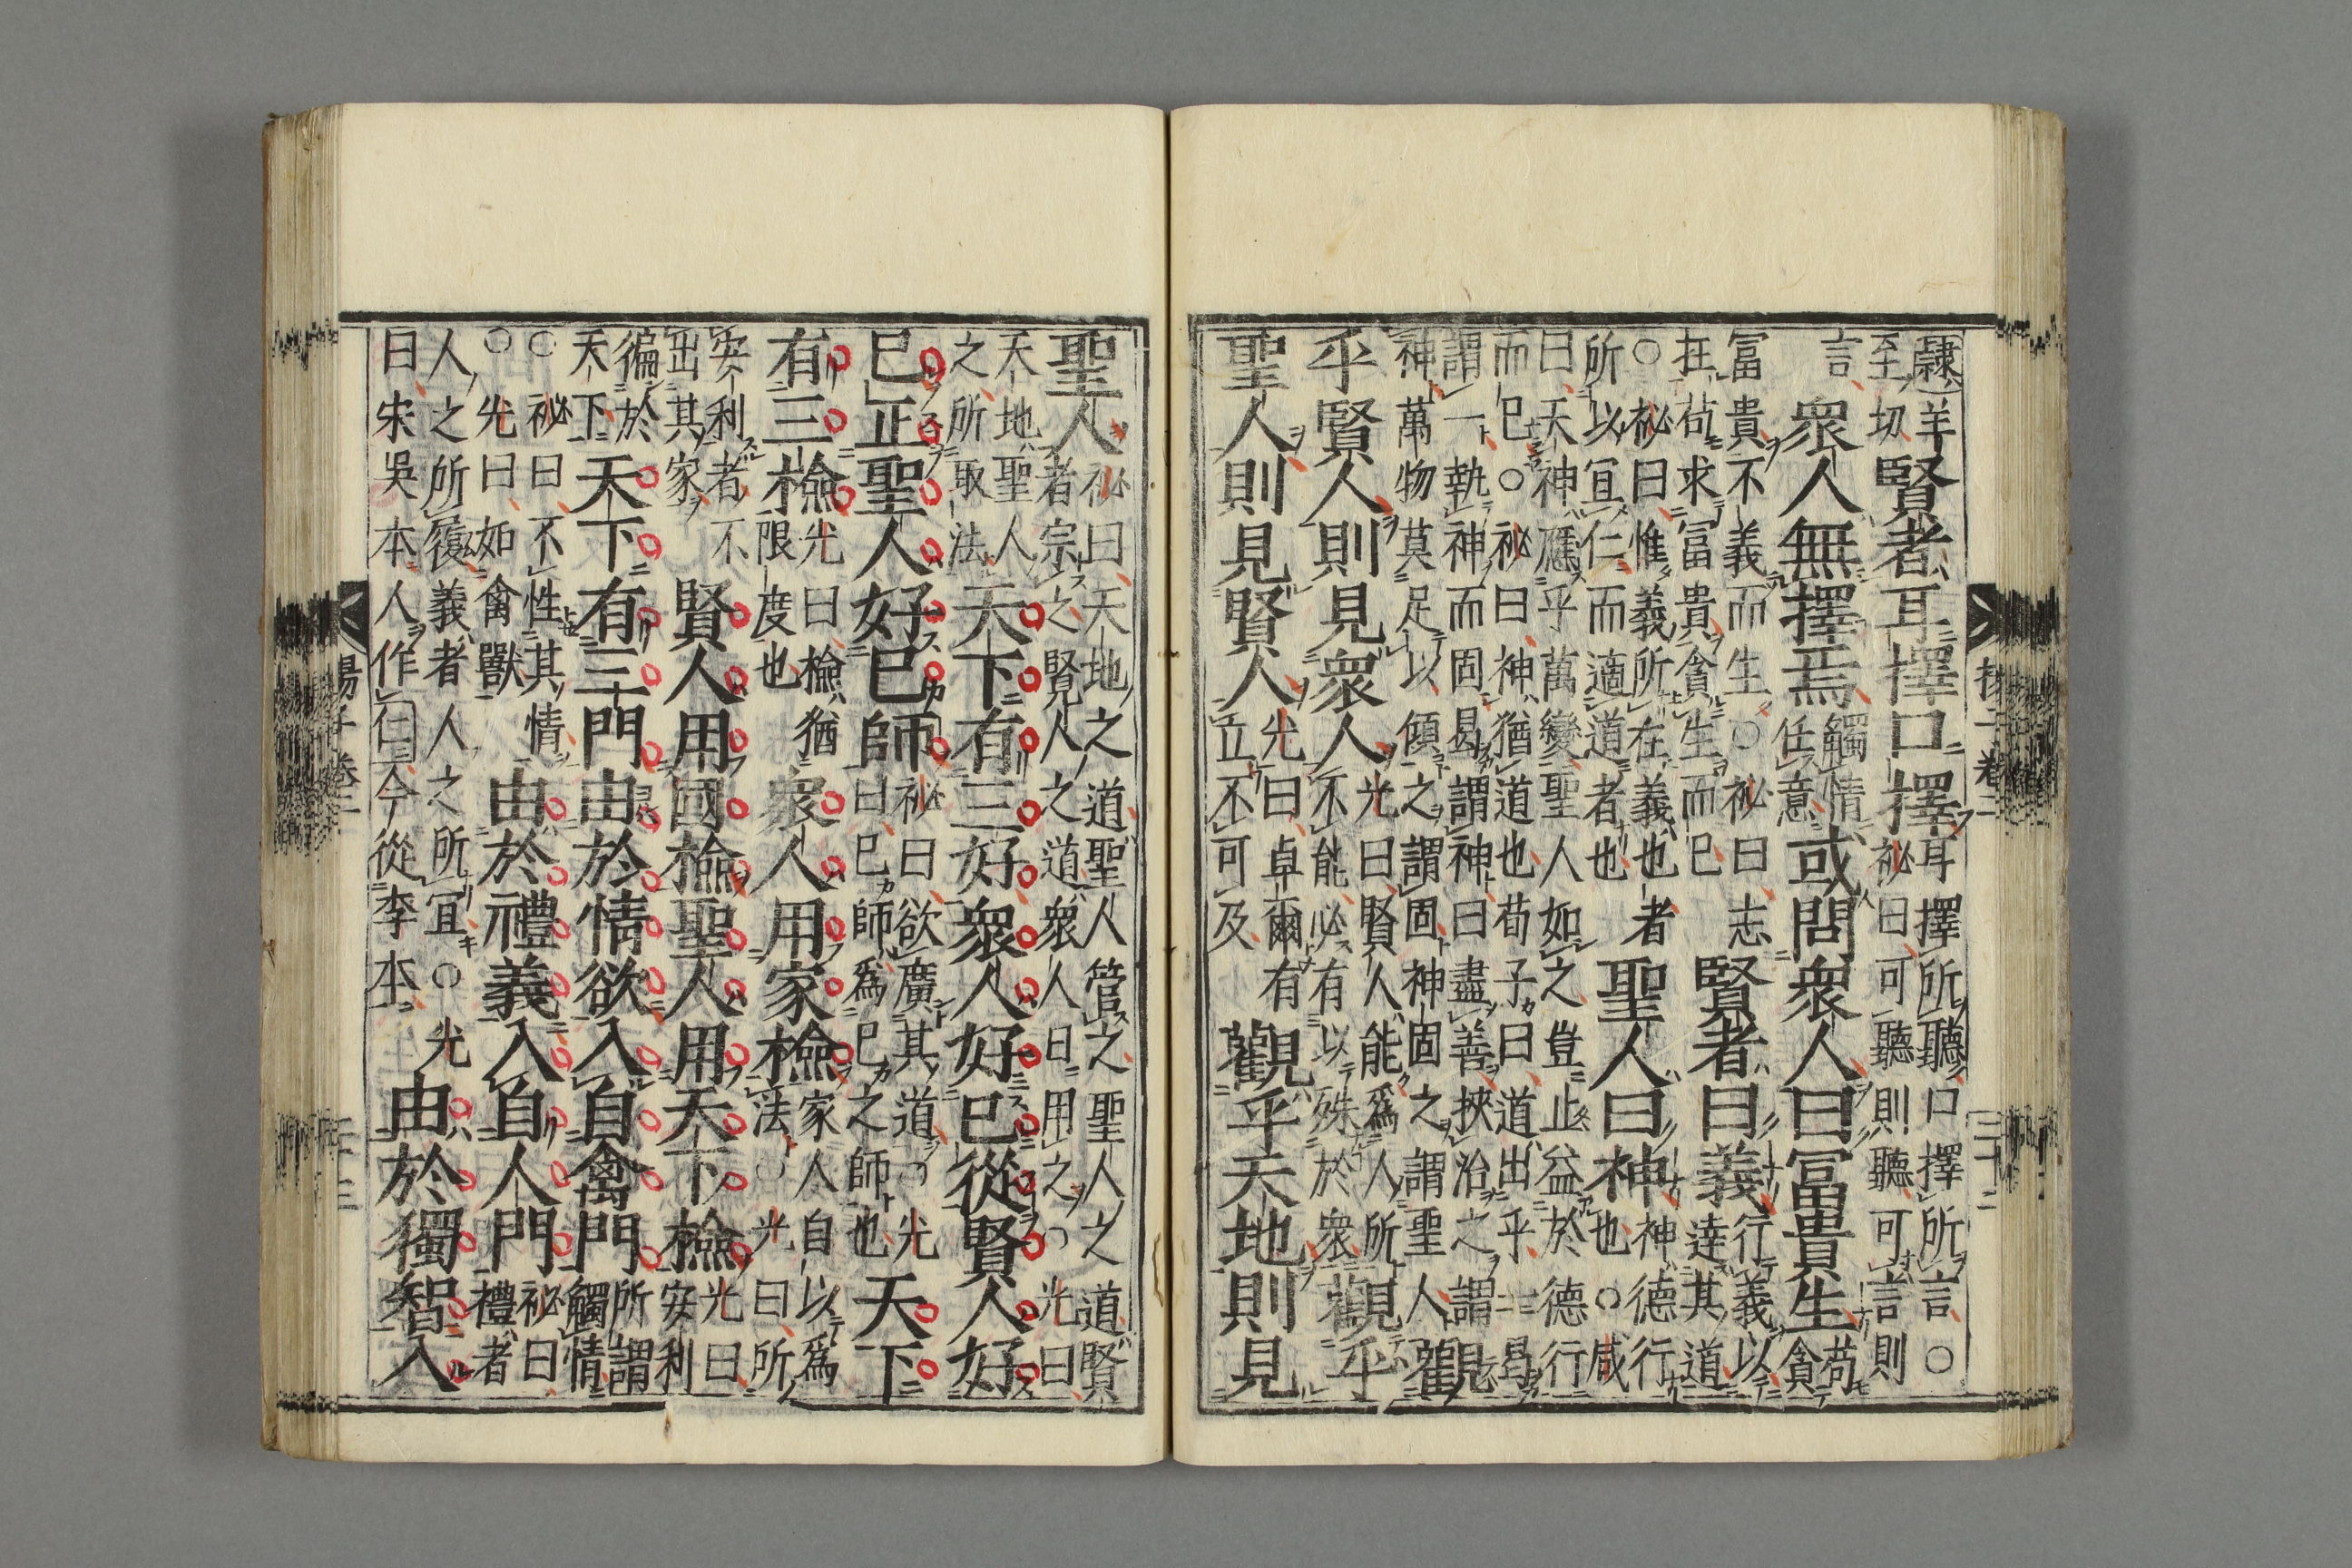 隸羊
至切
賢者耳擇口擇
耳擇所聽口擇所言○
祕曰可聽則聽可言則
言
衆人無擇焉
觸情
任意
或問衆人曰冨貴生
苟
貪
冨貴不義而生○祕曰志
在苟求冨貴貪生而已
賢者曰義
行義以
達其道
○祕曰惟義所在義也者
所以冝仁而適道者也
聖人曰神
神德行
也○咸
曰天神應乎萬變聖人如之豈止益於德行
而已○祕曰神猶道也荀子曰道出乎一曷
謂一執神而固曷謂神曰盡善挾治之謂
神萬物莫足以傾之謂固神固之謂聖人
觀
乎賢人則見衆人
光曰賢人能爲人所
不能必有以殊於衆
觀乎
聖人則見賢人
光曰卓爾有
立不可及
觀乎天地則見
聖人
祕曰天地之道聖人管之聖人之道賢
者宗之賢人之道衆人日用之○光曰
天地聖人
之所取法
天下有三好衆人好已從賢人好
已正聖人好已師
祕曰欲廣其道○光
曰已師爲已之師也
天下
有三檢
光曰檢猶
限度也
衆人用家檢
家人自以爲
法○光曰所
安利者不
出其家
賢人用國檢聖人用天下檢
光曰
安利
徧於
天下
天下有三門由於情欲入自禽門
所謂
觸情
○祕曰不性其情
○光曰如禽獸
由於禮義入自人門
祕曰
禮者
人之所履義者人之所冝○光
曰宋吳本人作仁今從李本
由於獨智入